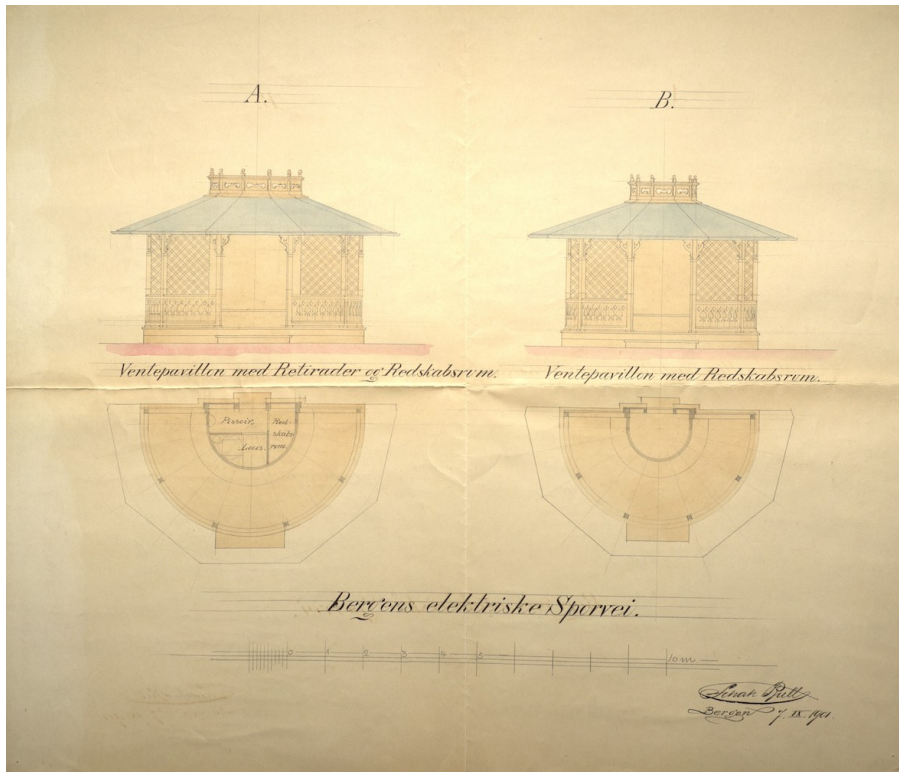 A.
B.
Ventepavillon med Retirader og Redskabsrum.
Ventepavillon med Redskabsrum.
Pissoir,
Red-
skabs-
rum.
Bergens elektriske Sporvei.
0 1 2 3 4 5 10 m
Schak Bull
Bergen 7 IX 1901.